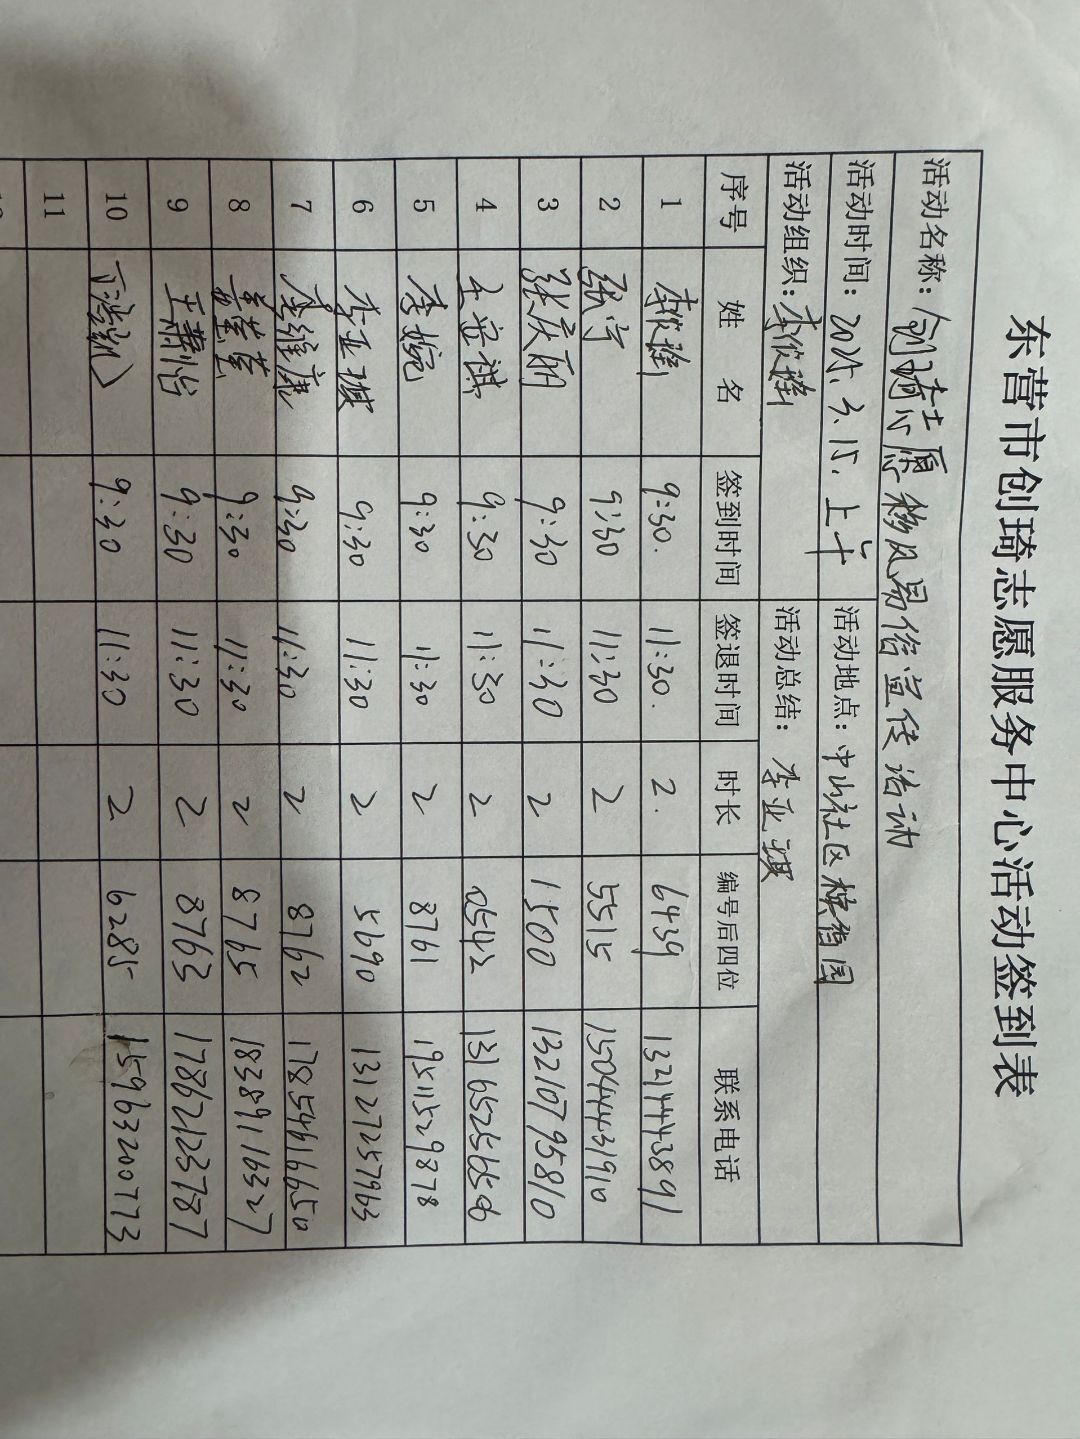 东营市创琦志愿服务中心活动签到表
活动名称：创琦志愿移风易俗宣传活动
活动时间：2025.3.15.上午 活动地点：中山社区槐香园
活动组织：李俊雅 活动总结：李亚琪
序号 姓名 签到时间 签退时间 时长 编号后四位 联系电话
1 李俊雅 9:30. 11:30. 2. 6439 13214443891
2 张宁 9:30 11:30 2 5515 15044431910
3 张庆丽 9:30 11:30 2 1500 13210795810
4 王安祺 9:30 11:30 2 0542 13165256506
5 李婉 9:30 11:30 2 8761 19511529878
6 李亚琪 9:30 11:30 2 5690 13127257963
7 李维康 9:30 11:30 2 8762 17854616950
8 9:30 11:30 2 8765 18389116527
9 王萧怡 9:30 11:30 2 8763 17862123787
10 9:30 11:30 2 6285 15963200773
11